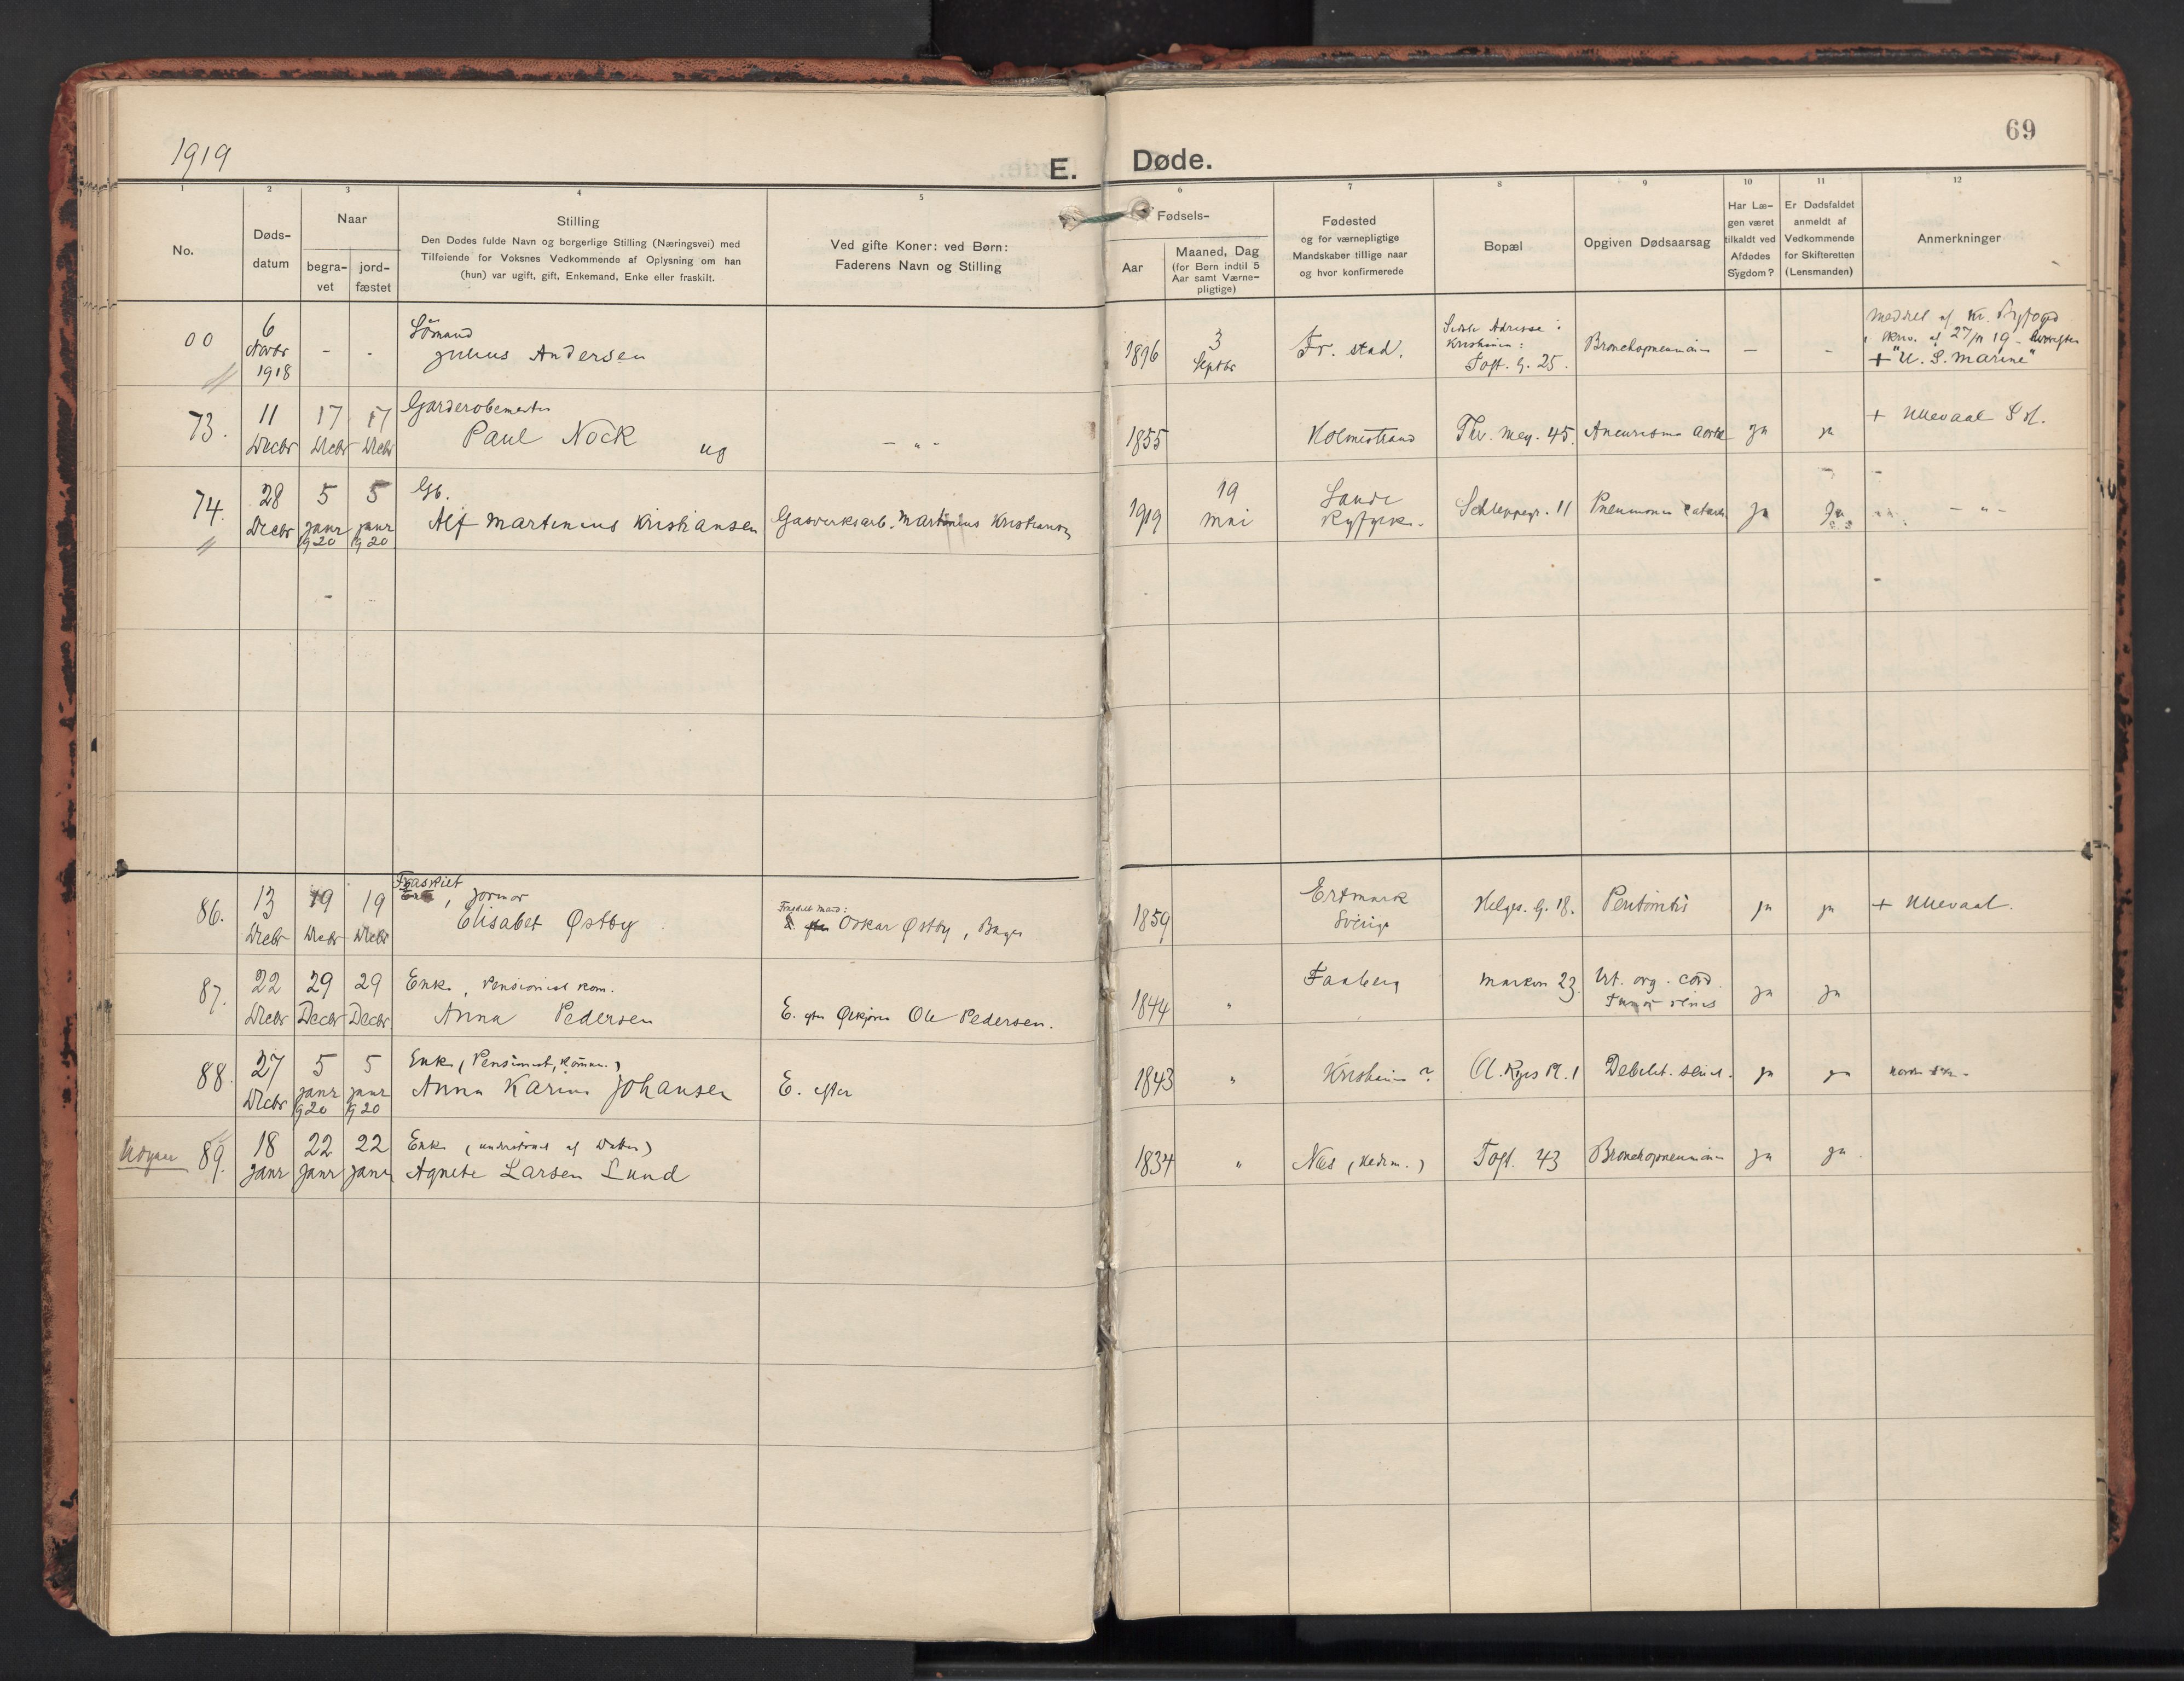 1919
E. Døde.
69
1 2 3 4 5 6 7 8 9 10 11 12
No.
Døds-
datum
Naar
begra-
vet
jord-
fæstet
Stilling
Den Dødes fulde Navn og borgerlige Stilling (Næringsvei) med
Tilføiende for Voksnes Vedkommende af Oplysning om han
(hun) var ugift, gift, Enkemand, Enke eller fraskilt.
Ved gifte Koner: ved Børn:
Faderens Navn og Stilling
Fødsels-
Aar
Maaned, Dag
(for Børn indtil 5
Aar samt Værne-
pligtige)
Fødested
og for værnepligtige
Mandskaber tillige naar
og hvor konfirmerede
Bopæl
Opgiven Dødsaarsag
Har Læ-
gen været
tilkaldt ved
Afdødes
Sygdom?
Er Dødsfaldet
anmeldt af
Vedkommende
for Skifteretten
(Lensmanden)
Anmerkninger
00
6
Novbr
1918
- -
Sömand
Julius Andersen
1896
3
Septbr
Fr. stad.
Sidste Adresse:
Kristiania:
Toft. G. 25.
Bronchopneumonia
- -
Meddelt af Kr. Byfoged
+ "U. S. Marine"
73.
11
Decbr
17
Decbr
17
Decbr
Garderobemester
Paul Nock ug
- " -
1855
Holmestrand
Thv. Mey. 45.
Aneurisma Aortæ
ja
ja
+ Ullevaal
74.
28
Decbr
5
Janr
1920
5
Janr
1920
Gb.
Alf Martinius Kristiansen
Gasverksarb. Martinius Kristiansen
1919
19
Mai
Sande
Ryfylke.
Schleppegr. 11
Pneumonia catarrh.
ja
ja
- " -
86.
13
Decbr
19
Decbr
19
Decbr
Fraskilt
Enke, Jormor
Elisabet Østby
Fraskilt Mand:
Oskar Østby, Bager
1859
Ertmark
Sverige
Helges. G. 18.
Peritonitis
ja
ja
+ Ullevaal.
87.
22
Decbr
29
Decbr
29
Decbr
Enke, Pensionist kom.
Anna Pedersen
E. efter Ole Pedersen.
1844
"
Faaberg
Markvn 23.
Vit. org. cord.
ja
ja
88.
27
Decbr
5
Janr
1920
5
Janr
1920
Enke (Pensionist, Komm.)
Anna Karine Johansen
E. efter
1843
"
Kristiania ?
Ol. Ryes Pl. 1
Debilit. senil.
ja
ja
89.
18
Janr
22
Janr
22
Janr
Enke (understöttet af Datter)
Agnete Larsen Lund
1834
"
Næs (Hedm.)
Toft. 43
Bronchopneumonia
ja
ja.